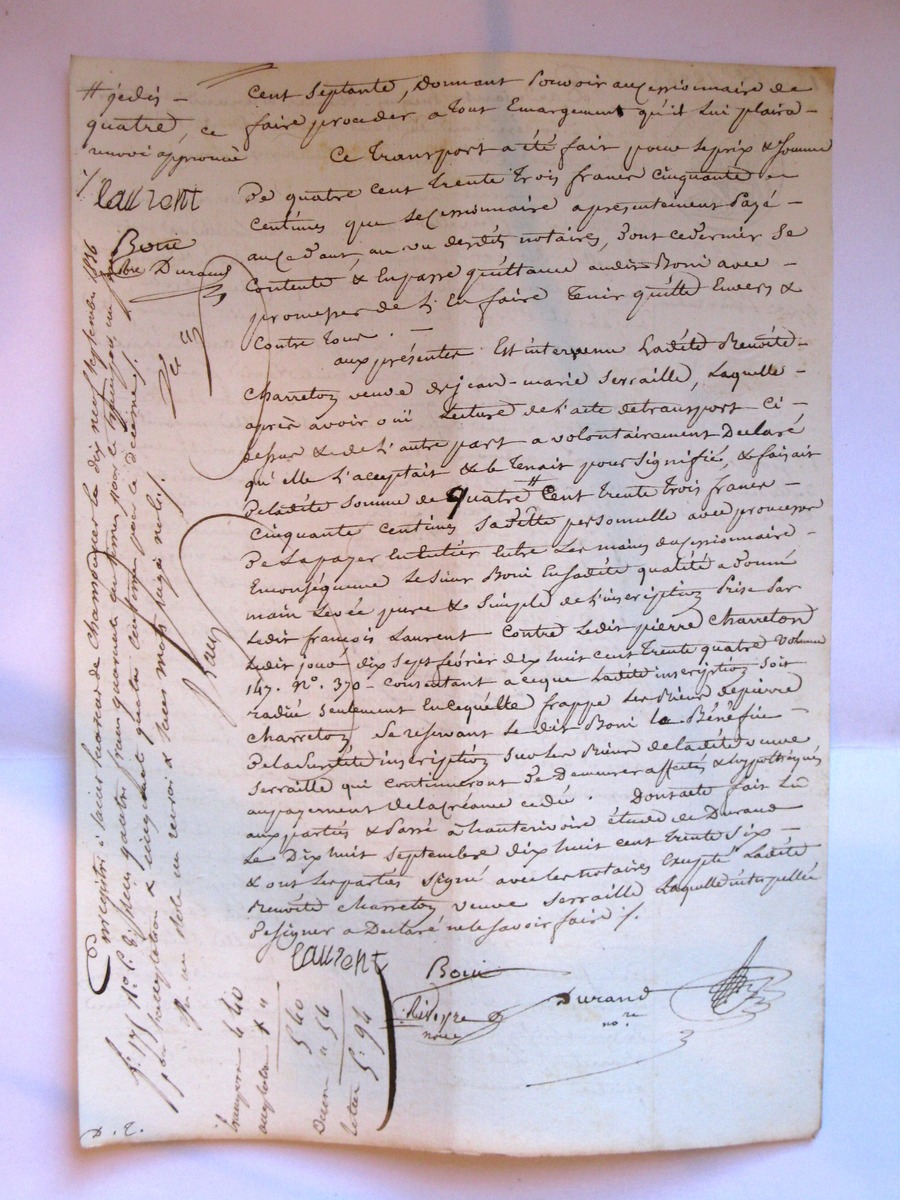 cent septante, Donnant Pouvoir au cessionnaire de
faire proceder a tout Emargement qu'il lui plaira -
Ce transport a été fait pour le prix & Somme
De quatre cent trente trois francs cinquante
Centimes que le cessionnaire a présentement Payé -
au cédant, au vu desdits notaires, dont ce dernier Se
Contente & En passe quittance audit Boni avec -
promesse de L'En faire Tenir quitte Envers &
Contre tous. -
aux présentes Est intervenu Ladite Benoite -
Charreton veuve de jean-marie Serraille, Laquelle -
après avoir oui Lecture de l'acte de transport Ci -
dessus & de L'autre part a volontairement Déclaré
qu'elle L'acceptait & le Tenait pour Signifié, & faisait
De ladite Somme de quatre # Cent trente trois francs -
Cinquante centimes Sa Dette personnelle avec promesse
De La payer En Entier Entre Les mains du cessionnaire -
En conséquence Le Sieur Boni En sadite qualité a donné
main Levée pure & Simple de l'inscription Prise Par
Ledit françois Laurent contre Ledit pierre Charreton
Ledit jour dix Sept février dix huit cent trente quatre volume
147. N°. 370 - consentant a ce que Ladite inscription Soit
radiée Seulement En ce qu'elle frappe Les Biens de pierre
Charreton, Se reservant Le dit Boni le Bénéfice -
De la Susdite inscription Sur Les Biens de ladite veuve
Serraille qui continueront De Demeurer affectés & hypothéqués
au payement de la créance cédée. Dont acte fait Lu
aux parties & Passé a hauterivoire étude de Durand
Le Dix huit Septembre dix huit cent trente Six -
& ont Les parties Signé avec les notaires Excepté Ladite
Benoite Charreton veuve Serraille Laquelle interpellée
De signer a Déclaré ne le Savoir faire ./.
laurent
Boni
Durand
n.re
# jedis -
quatre, ce
renvoi approuvé
./.
laurent
Boni
Durand
Enregistré à Saint Laurent de Chamousset le dix neuf Septembre 1836
f° 175 R° C.
transport 4 40
5 40
Decime 54
5. 94
D. L.